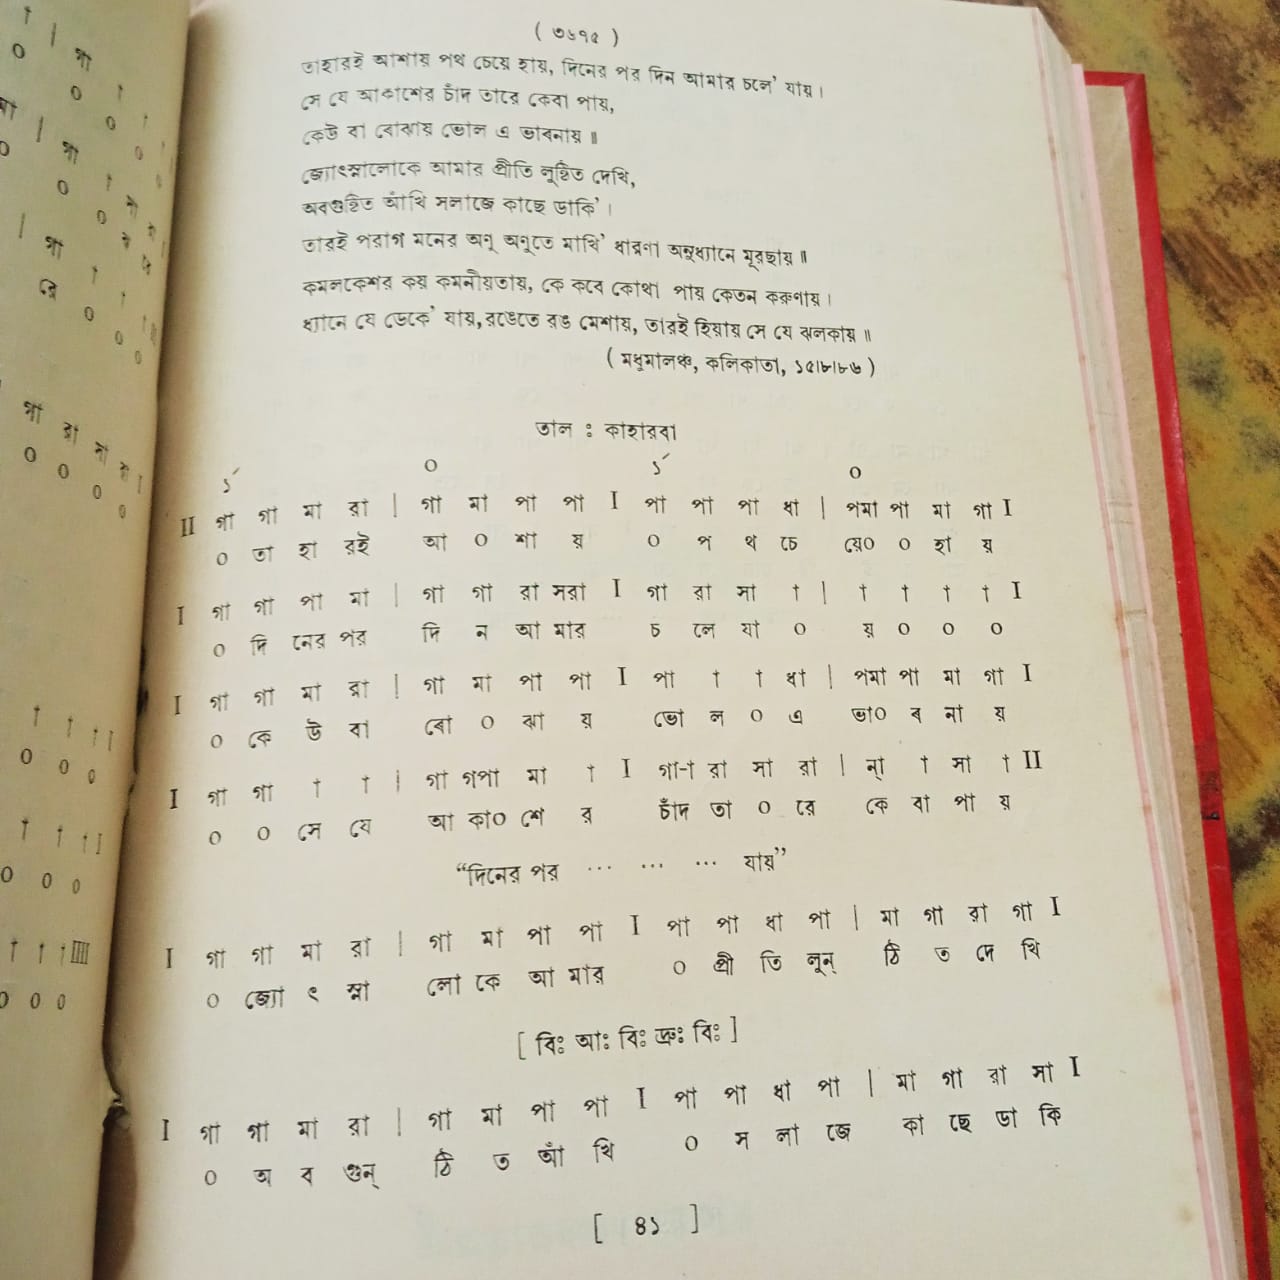 ( ৩৬৭৫ )
তাহারই আশায় পথ চেয়ে হায়, দিনের পর দিন আমার চলে' যায় ।
সে যে আকাশের চাঁদ তারে কেবা পায়,
কেউ বা বোঝায় ভোল এ ভাবনায় ॥
জ্যোৎস্নালোকে আমার প্রীতি লূণ্ঠিত দেখি,
অবগুণ্ঠিত আঁখি সলাজে কাছে ডাকি' ।
তারই পরাগ মনের অনূ অনূতে মাখি' ধারণা অনুধ্যানে মূরছায় ॥
কমলকেশর কয় কমনীয়তায়, কে কবে কোথা পায় কেতন করুণায় ।
ধ্যানে যে ডেকে' যায়, রঙেতে রঙ মেশায়, তারই হিয়ায় সে যে ঝলকায় ॥
( মধুমালঞ্চ, কলিকাতা, ১৫।৮।৮৬ )
তাল : কাহারবা
১´ ০ ১´ ০
II গা গা মা রা | গা মা পা পা I পা পা পা ধা | পমা পা মা গা I
০ তা হা রই আ ০ শা য় ০ প থ চে য়ে০ ০ হা য়
I গা গা পা মা | গা গা রা সরা I গা রা সা † | † † † † I
০ দি নের পর দি ন আ মার চ লে যা ০ য় ০ ০ ০
I গা গা মা রা | গা মা পা পা I পা † † ধা | পমা পা মা গা I
০ কে উ বা বো ০ ঝা য় ভো ল ০ এ ভা০ ব না য়
I গা গা † † | গা গপা মা † I গা-া রা সা রা | ন্া † সা † II
০ ০ সে যে আ কা০ শে র চাঁদ তা ০ রে কে বা পা য়
“দিনের পর ... ... ... যায়”
I গা গা মা রা | গা মা পা পা I পা পা ধা পা | মা গা রা গা I
০ জ্যো ৎ স্না লো কে আ মার ০ প্রী তি লূন্ ঠি ত দে খি
[ বিঃ আঃ বিঃ দ্রুঃ বিঃ ]
I গা গা মা রা | গা মা পা পা I পা পা ধা পা | মা গা রা সা I
০ অ ব গুন্ ঠি ত আঁ খি ০ স লা জে কা ছে ডা কি
[ ৪১ ]